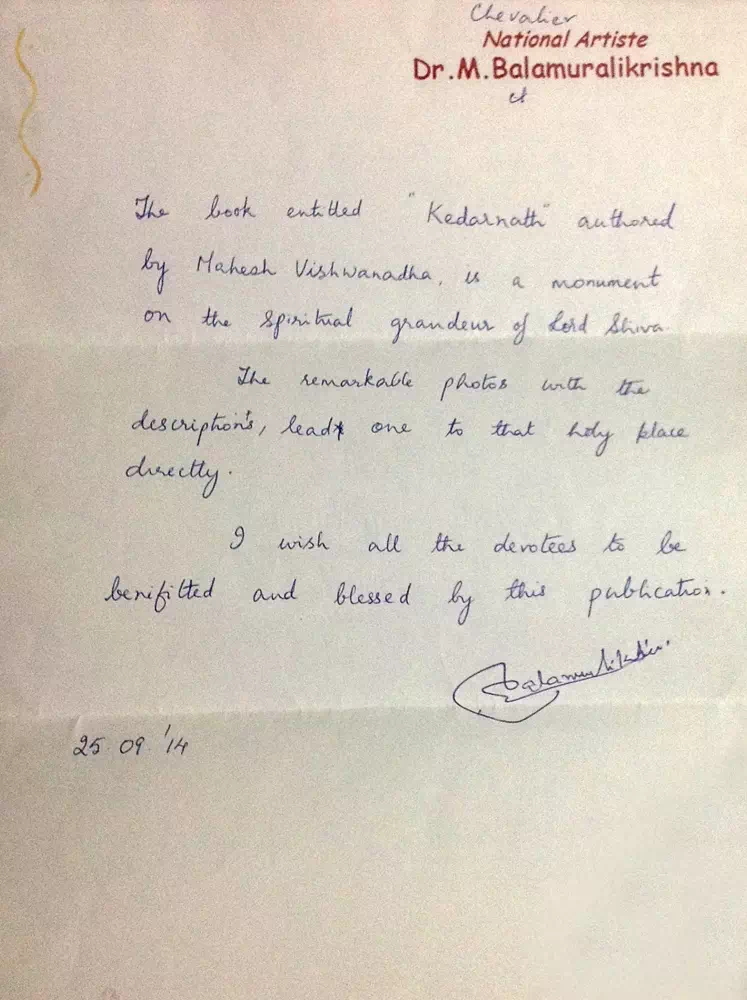 Chevalier
National Artiste
Dr.M.Balamuralikrishna
The book entitled "Kedarnath" authored
by Mahesh Vishwanadha, is a monument
on the spiritual grandeur of Lord Shiva.
The remarkable photos with the
descriptions, lead one to that holy place
directly.
I wish all the devotees to be
benifitted and blessed by this publication.
Balamuralikrishna
25.09.'14